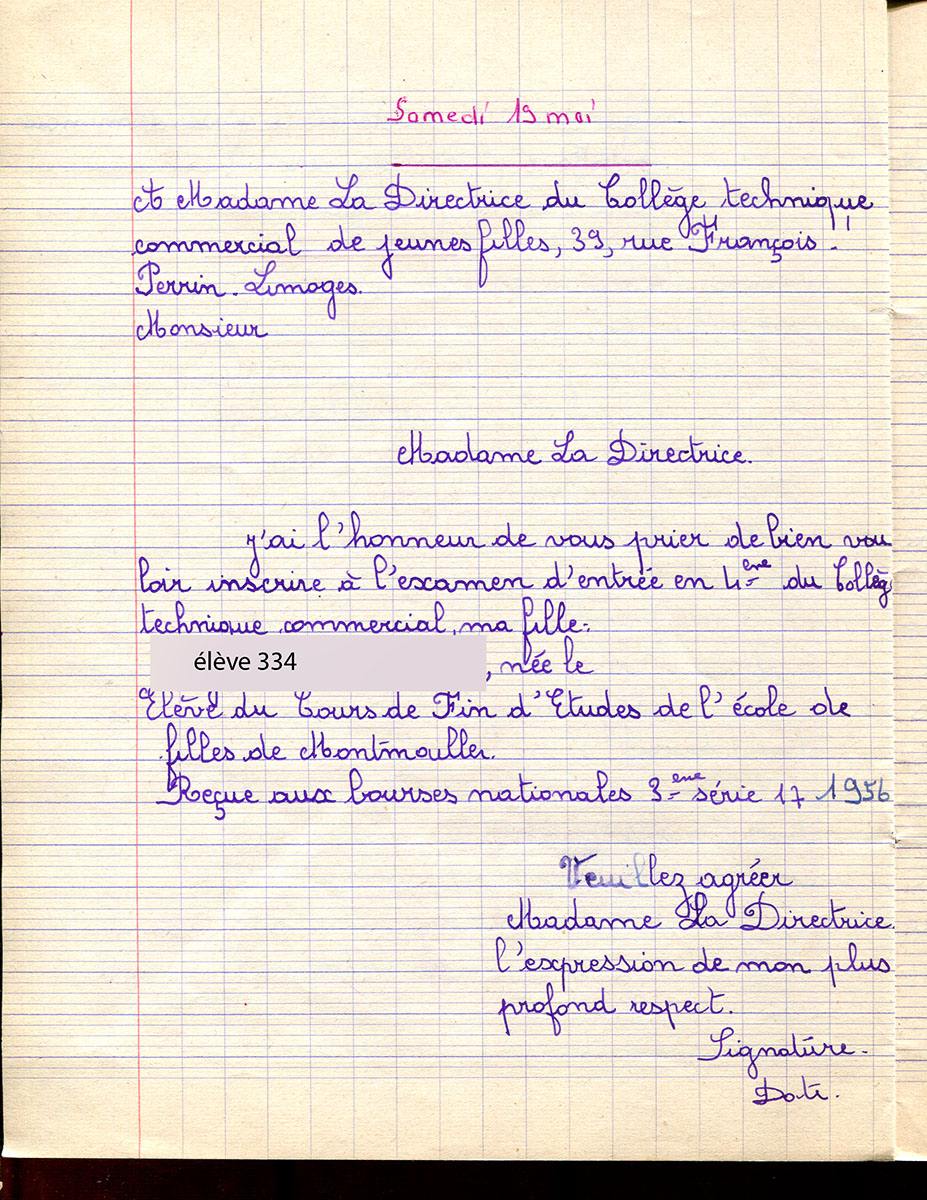 Samedi 19 mai
A Madame La Directrice du Collège technique
commercial de jeunes filles, 39, rue François !!
Perrin. Limoges.
Monsieur
Madame La Directrice.
J'ai l'honneur de vous prier de bien vou
loir inscrire à l'examen d'entrée en 4ème du Collèg
technique commercial, ma fille:
élève 334
, née le
Elève du Cours de Fin d'Etudes de l'école de
filles de Montmouller.
Reçue aux bourses nationales 3ème série 17 1956
Veuillez agréer
Madame La Directrice.
l'expression de mon plus
profond respect.
Signature.
Date.